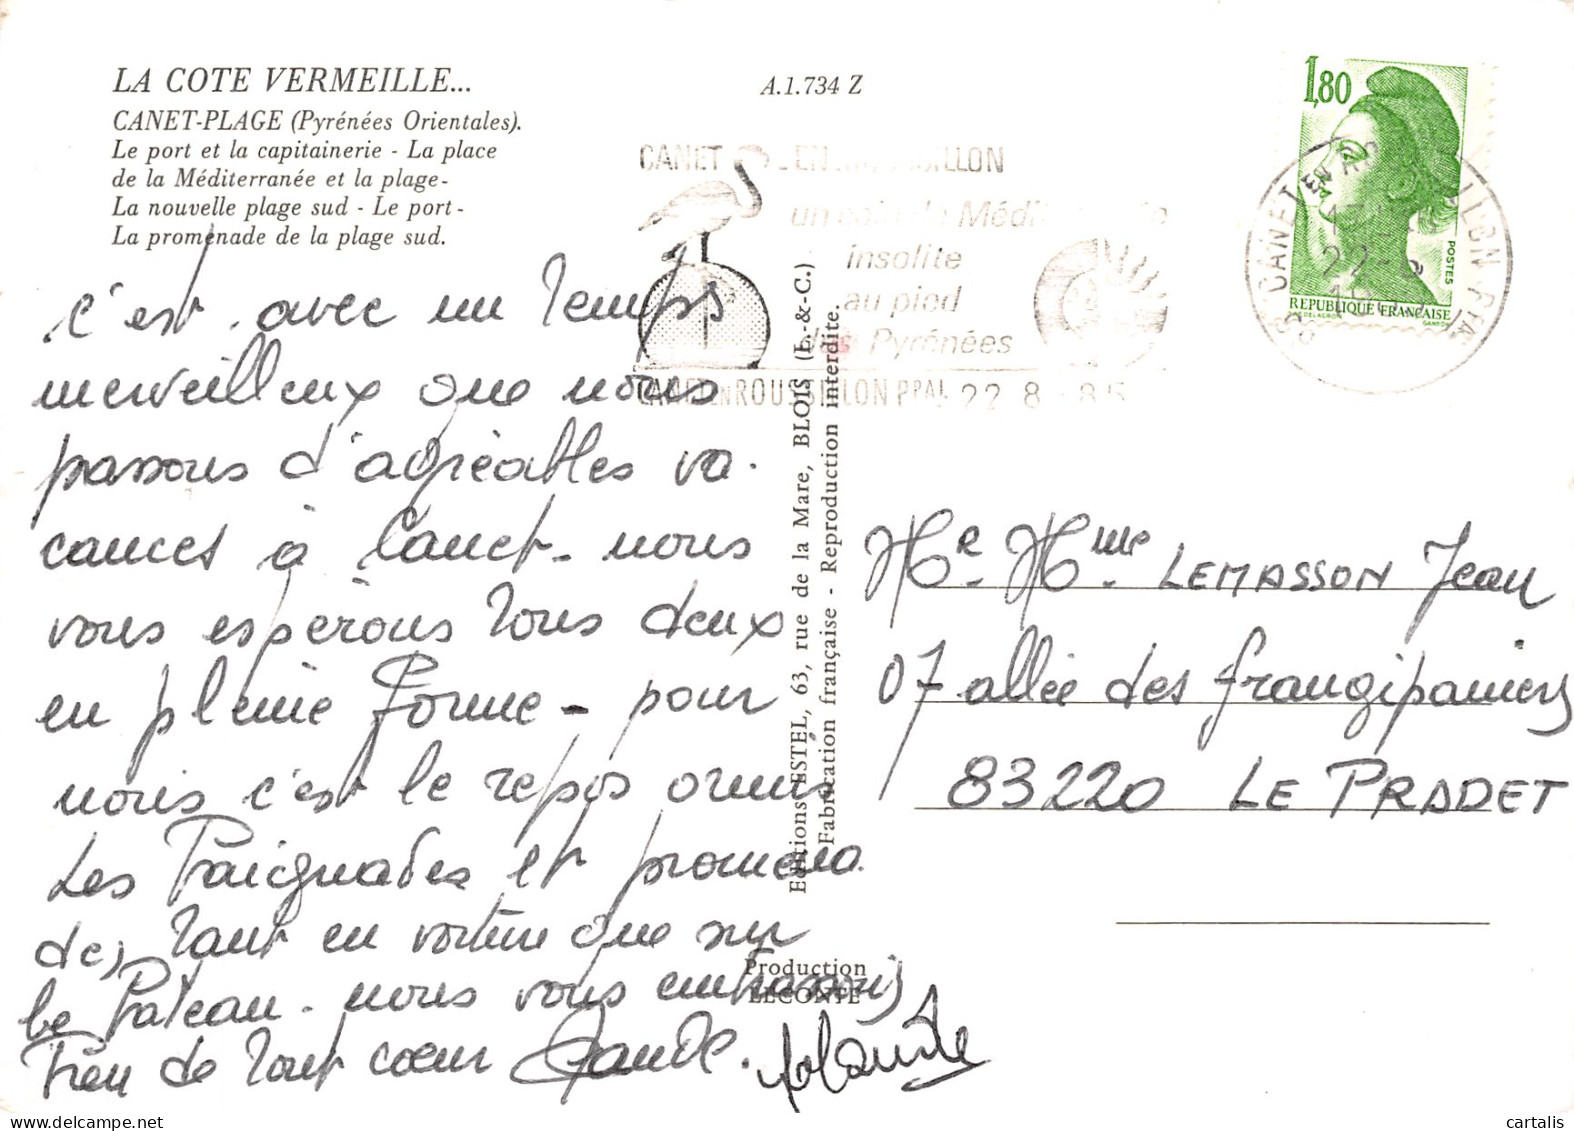 LA COTE VERMEILLE...
CANET-PLAGE (Pyrénées Orientales).
Le port et la capitainerie - La place
de la Méditerranée et la plage-
La nouvelle plage sud - Le port-
La promenade de la plage sud.
A.1.734 Z
1,80
POSTES
REPUBLIQUE FRANÇAISE
CANET EN
22-8
CANET - EN
insolite
au pied
des Pyrénées
CANET EN ROUSSILLON PPAL 22 8 - 85
c'est avec un temps
merveilleux que nous
passons d'agréables va-
cances à Canet - nous
vous espérons tous deux
en pleine forme - pour
nous c'est le repos ormis
les Baignades et promena
des tant en voiture que sur
le Bateau - nous vous embrassons
Bien de tout coeur
Editions ESTEL, 63, rue de la Mare, BLOIS (L.-&-C.)
Fabrication française - Reproduction interdite.
Production
LECONTE
Mr. Mme LEMASSON Jean
07 allée des frangipaniers
83220 LE PRADET
cartalis.com